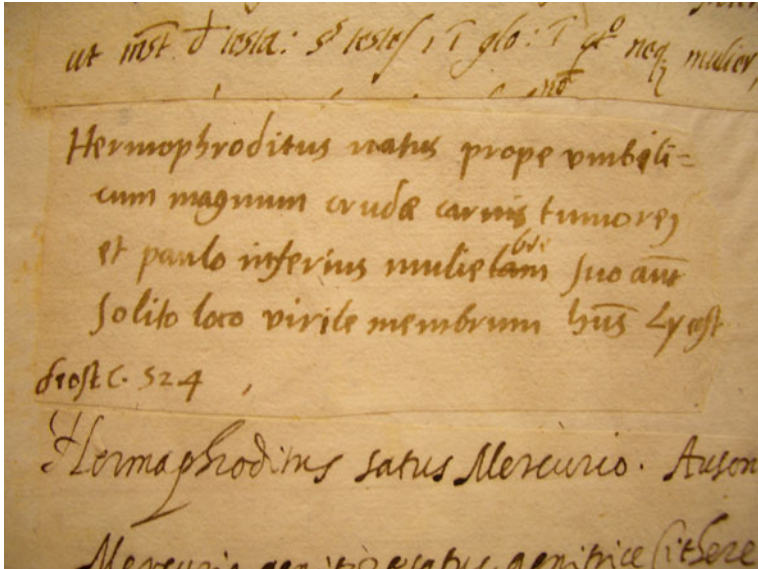 ut inst. đ testa: testes glo: neq mulier,
Hermophroditus natus prope vmbili=
cum magnum crudæ carnis tumorem
et paulo inferius mulie bre suo aūt
solito loco virile membrum hūs Lycost
frost c. 524
Hermaphroditus satus Mercurio. Auson
Mercurio genitore satus genitrice Cithere